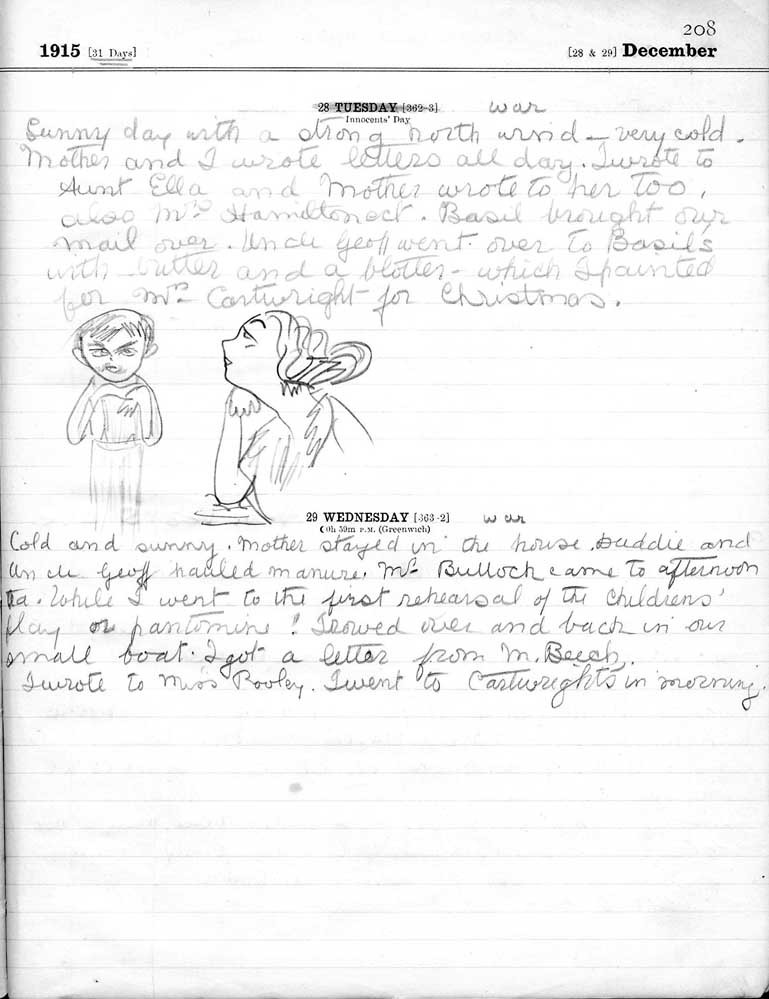 208
1915 [31 Days] [28 & 29] December
28 TUESDAY [362-3] war
Innocents' Day
Sunny day with a strong north wind - very cold.
Mother and I wrote letters all day. I wrote to
Aunt Ella and Mother wrote to her too,
also Mrs Hamilton ect. Basil brought our
mail over. Uncle Geoff went over to Basil's
with butter and a blotter - which I painted
for Mrs Cartwright for Christmas.
29 WEDNESDAY [363-2] war
(0h 59m P.M. (Greenwich)
Cold and sunny. Mother stayed in the house. Daddie and
Uncle Geoff hauled manure. Mrs Bulloch came to afternoon
tea. While I went to the first rehearsal of the childrens'
play or pantomine! I rowed over and back in our
small boat. I got a letter from M. Beech.
I wrote to Miss Pooley. I went to Cartwrights in morning.